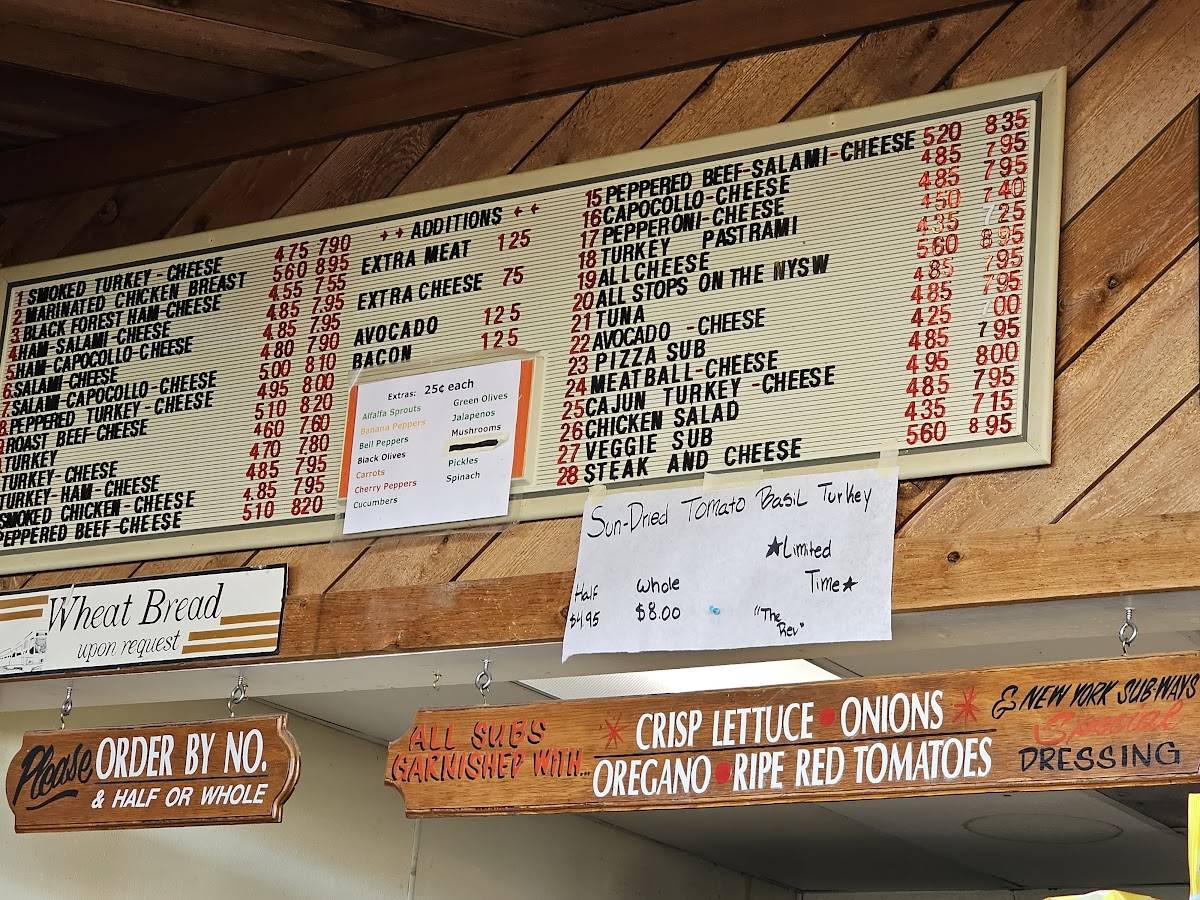 1 SMOKED TURKEY-CHEESE 475 790
2 MARINATED CHICKEN BREAST 560 895
3 BLACK FOREST HAM-CHEESE 455 755
4 HAM-SALAMI-CHEESE 485 795
5 HAM-CAPOCOLLO-CHEESE 485 795
6 SALAMI-CHEESE 480 790
7 SALAMI-CAPOCOLLO-CHEESE 500 810
8 PEPPERED TURKEY-CHEESE 495 800
ROAST BEEF-CHEESE 510 820
TURKEY 460 760
TURKEY-CHEESE 470 780
TURKEY-HAM-CHEESE 485 795
SMOKED CHICKEN-CHEESE 485 795
PEPPERED BEEF-CHEESE 510 820
++ ADDITIONS ++
EXTRA MEAT 125
EXTRA CHEESE 75
AVOCADO 125
BACON 125
Extras: 25¢ each
Alfalfa Sprouts
Banana Peppers
Bell Peppers
Black Olives
Carrots
Cherry Peppers
Cucumbers
Green Olives
Jalapenos
Mushrooms
Pickles
Spinach
15 PEPPERED BEEF-SALAMI-CHEESE 520 835
16 CAPOCOLLO-CHEESE 485 795
17 PEPPERONI-CHEESE 485 795
18 TURKEY PASTRAMI 450 740
19 ALL CHEESE 435 725
20 ALL STOPS ON THE NYSW 560 895
21 TUNA 485 795
22 AVOCADO -CHEESE 485 795
23 PIZZA SUB 425 00
24 MEATBALL-CHEESE 485 795
25 CAJUN TURKEY -CHEESE 495 800
26 CHICKEN SALAD 485 795
27 VEGGIE SUB 435 715
28 STEAK AND CHEESE 560 895
Sun-Dried Tomato Basil Turkey
★Limited
Time★
Half Whole
$4.95 $8.00
"The
Rev"
Wheat Bread
upon request
Please ORDER BY NO.
& HALF OR WHOLE
ALL SUBS
GARNISHED WITH...
CRISP LETTUCE • ONIONS
OREGANO • RIPE RED TOMATOES
& NEW YORK SUB-WAYS
Special
DRESSING